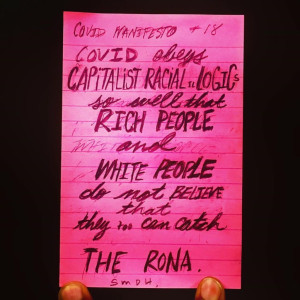 COVID MANIFESTO #18
COVID obeys
CAPITALIST RACIAL LOGICS
so well that
RICH PEOPLE
and
WHITE PEOPLE
do not BELIEVE
that
they too can catch
THE RONA.
SMDH.